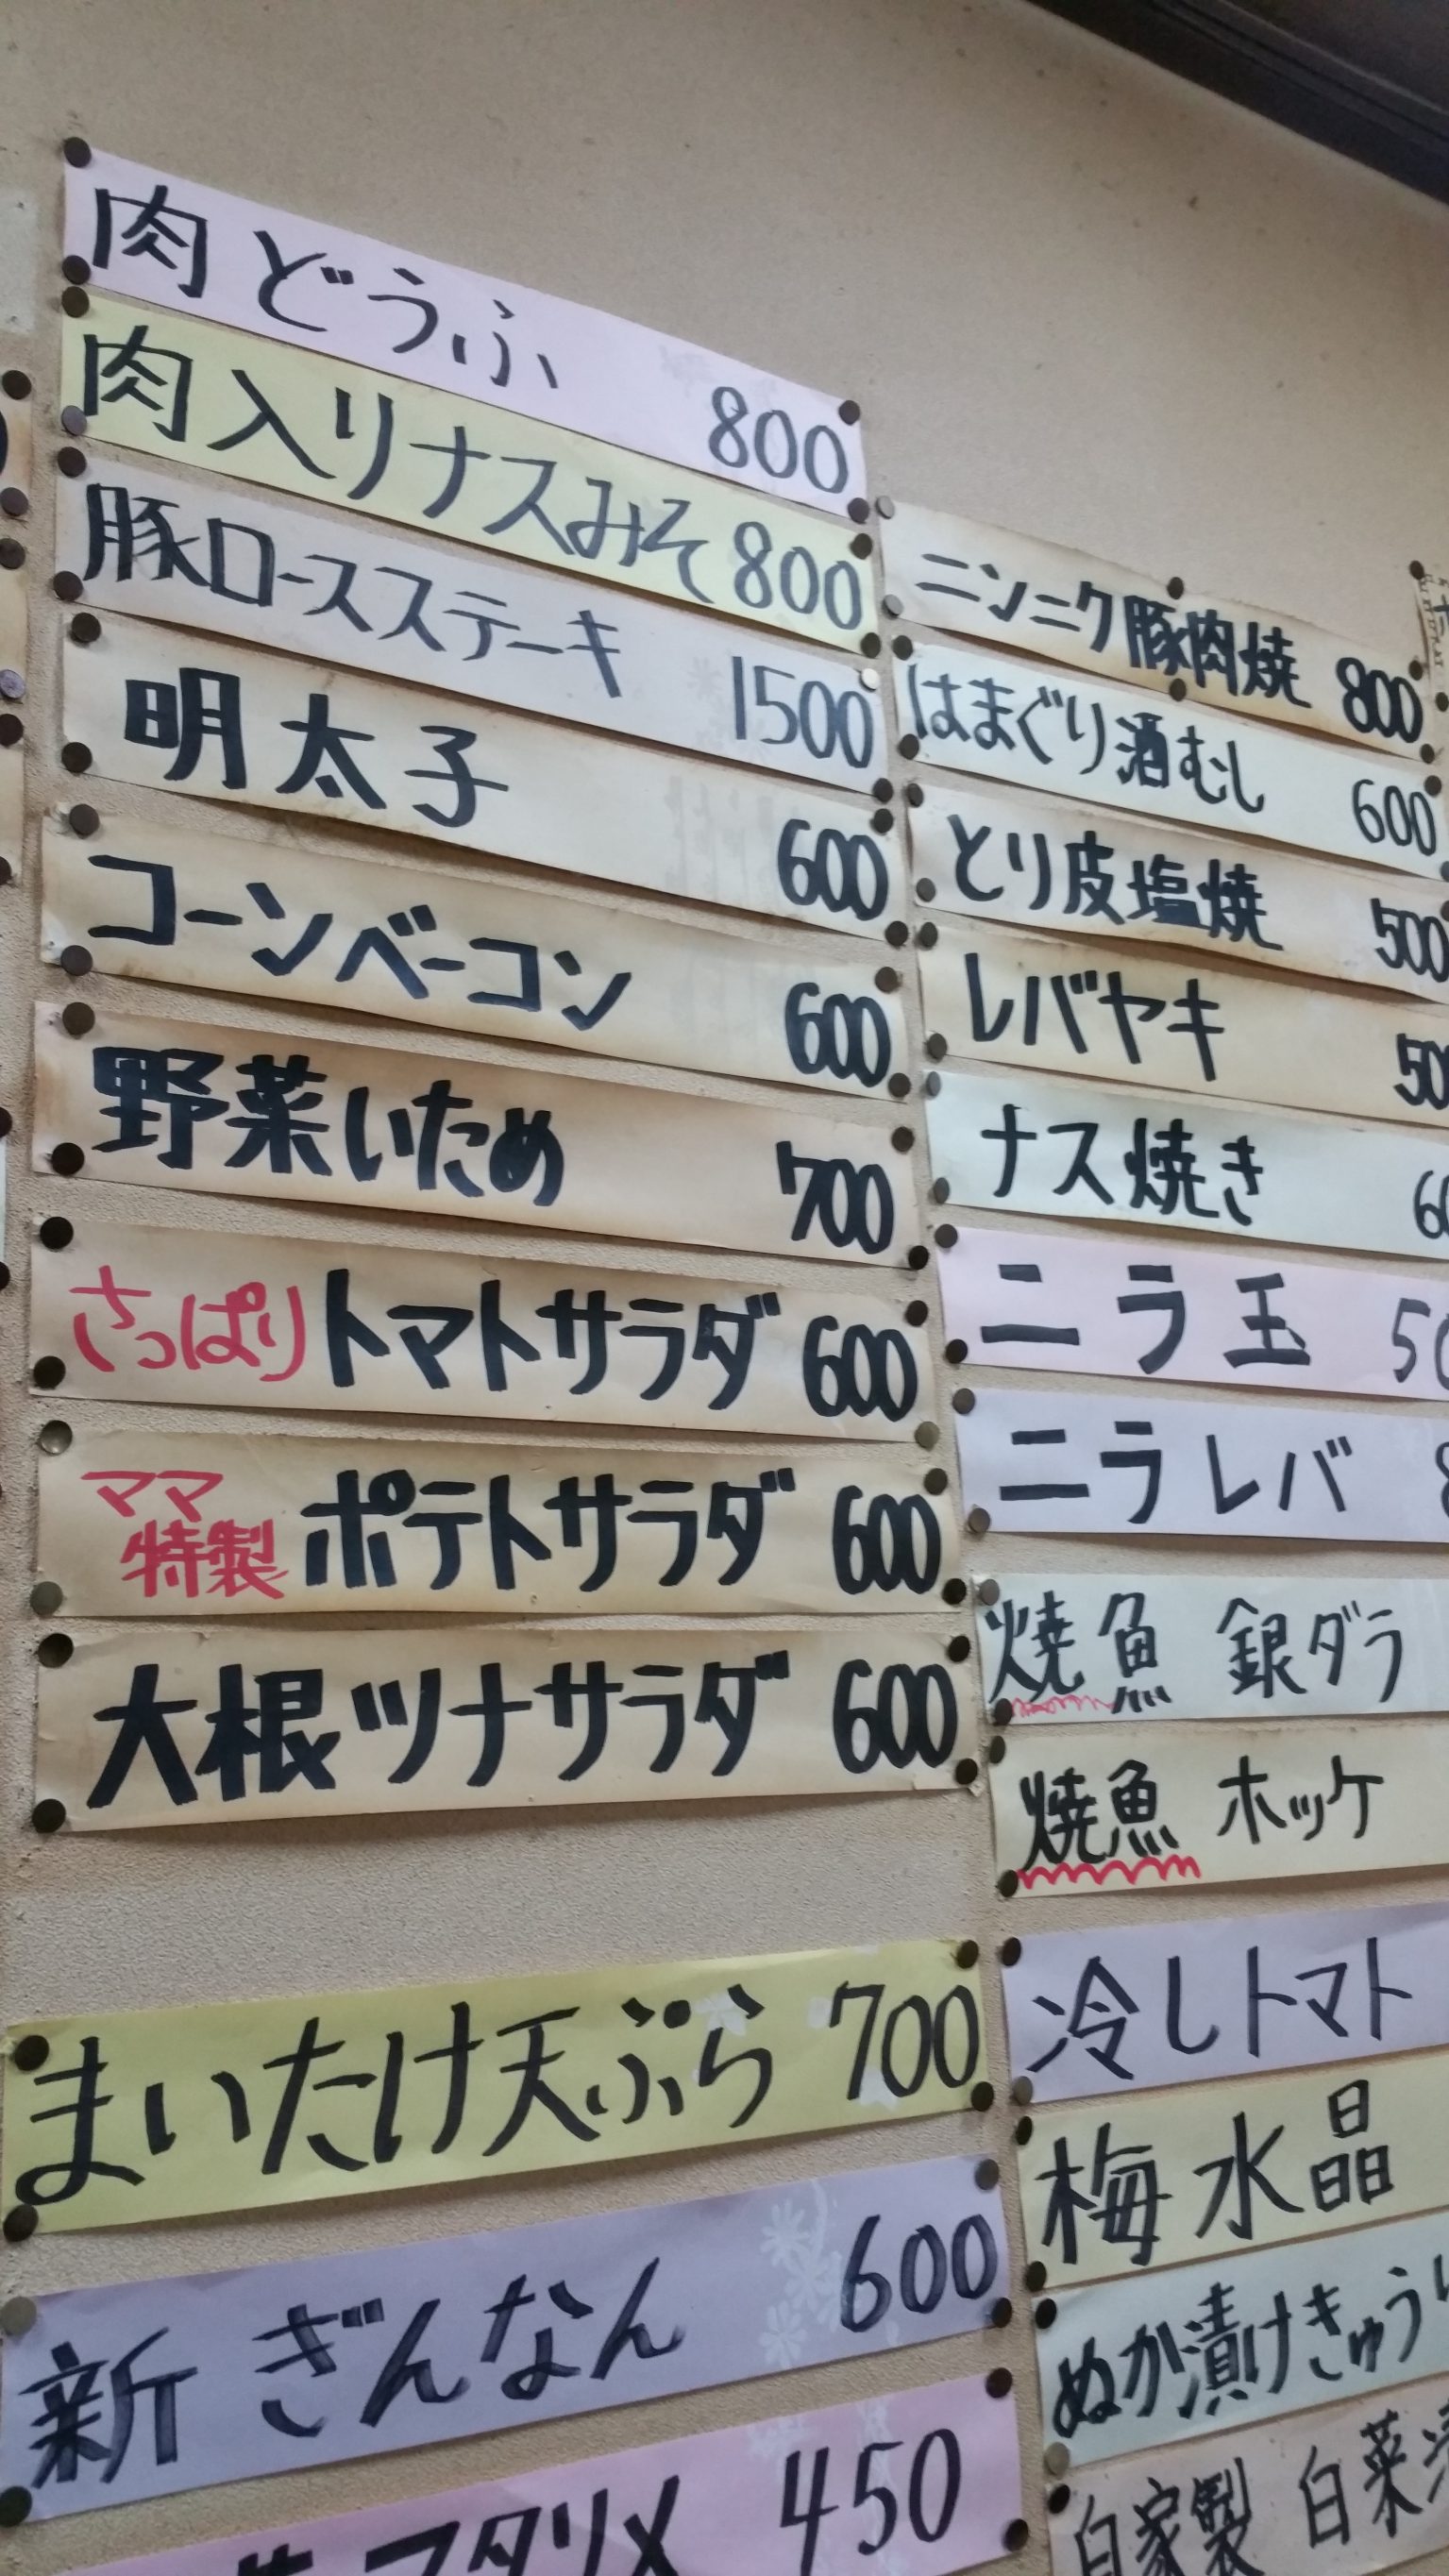 肉どうふ 800
肉入りナスみそ 800
豚ロースステーキ 1500
明太子 600
コーンベーコン 600
野菜いため 700
さっぱりトマトサラダ 600
ママ特製ポテトサラダ 600
大根ツナサラダ 600
まいたけ天ぷら 700
新ぎんなん 600
450
ニンニク豚肉焼 800
はまぐり酒むし 600
とり皮塩焼 500
レバヤキ
ナス焼き
ニラ玉
ニラレバ
焼魚 銀ダラ
焼魚 ホッケ
冷しトマト
梅水晶
ぬか漬けきゅうり
自家製 白菜